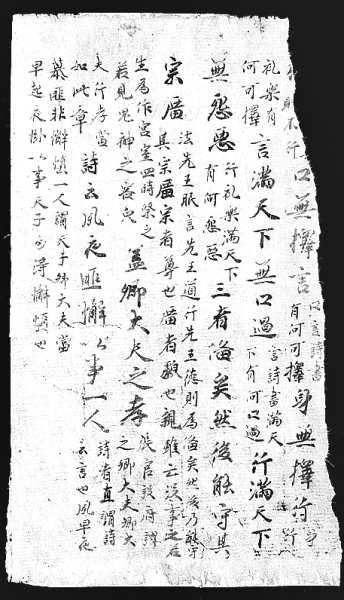 則不行
口無擇言
口言詩書
有何可擇
身無擇行
身
行
礼樂有
何可擇
言滿天下無口過
言詩書滿天
下有何口過
行滿天下
無怨惡
行礼樂滿天下
有何怨惡
三者俻矣然後能守其
宗廟
法先王服言先王道行先王德則為俻矣然後乃能守
其宗廟宗者尊也廟者皃也親雖亡沒事之若
生為作宮室四時祭之
若見鬼神之容皃
蓋卿大夫之孝
張官設府謂
之卿大夫卿大
夫行孝當
如此章
詩云夙夜匪懈以事一人
詩者直謂詩
云言也夙早夜
暮匪非懈惰一人謂天子卿大夫當
早起夜卧以事天子勿得懈惰也